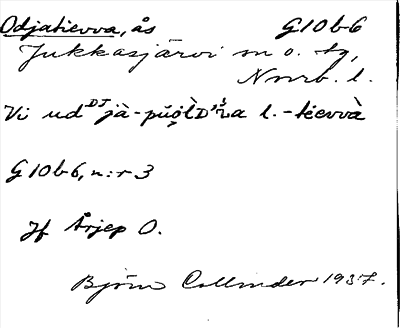 Odjatievva, ås G10b6
Jukkasjärvi sn o. tg,
Nnrb. l.
Vi ud jà- l. -tievvà
G10b6, n:r 3
Jf Årjep O.
Björn Collinder 1937.